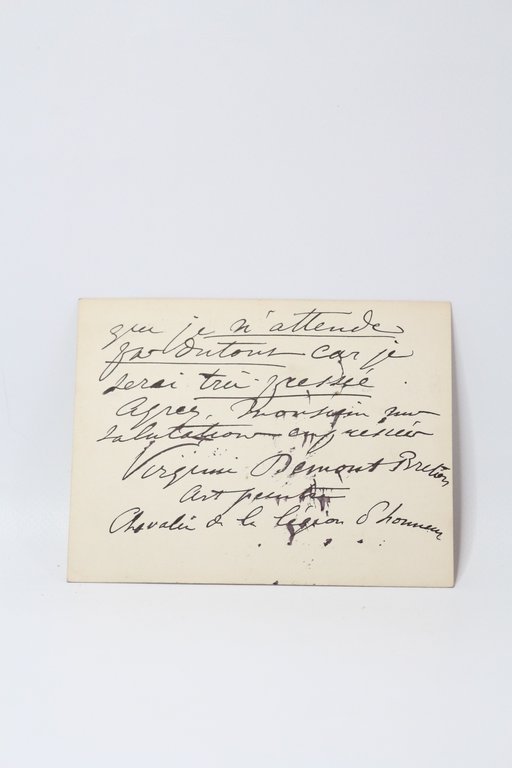 que je n'attende
pas du tout car je
serai très pressé.
Agréez, Monsieur, mes
salutations empressées
Virginie Demont Breton
Art peintre
Chevalier de la légion d'honneur